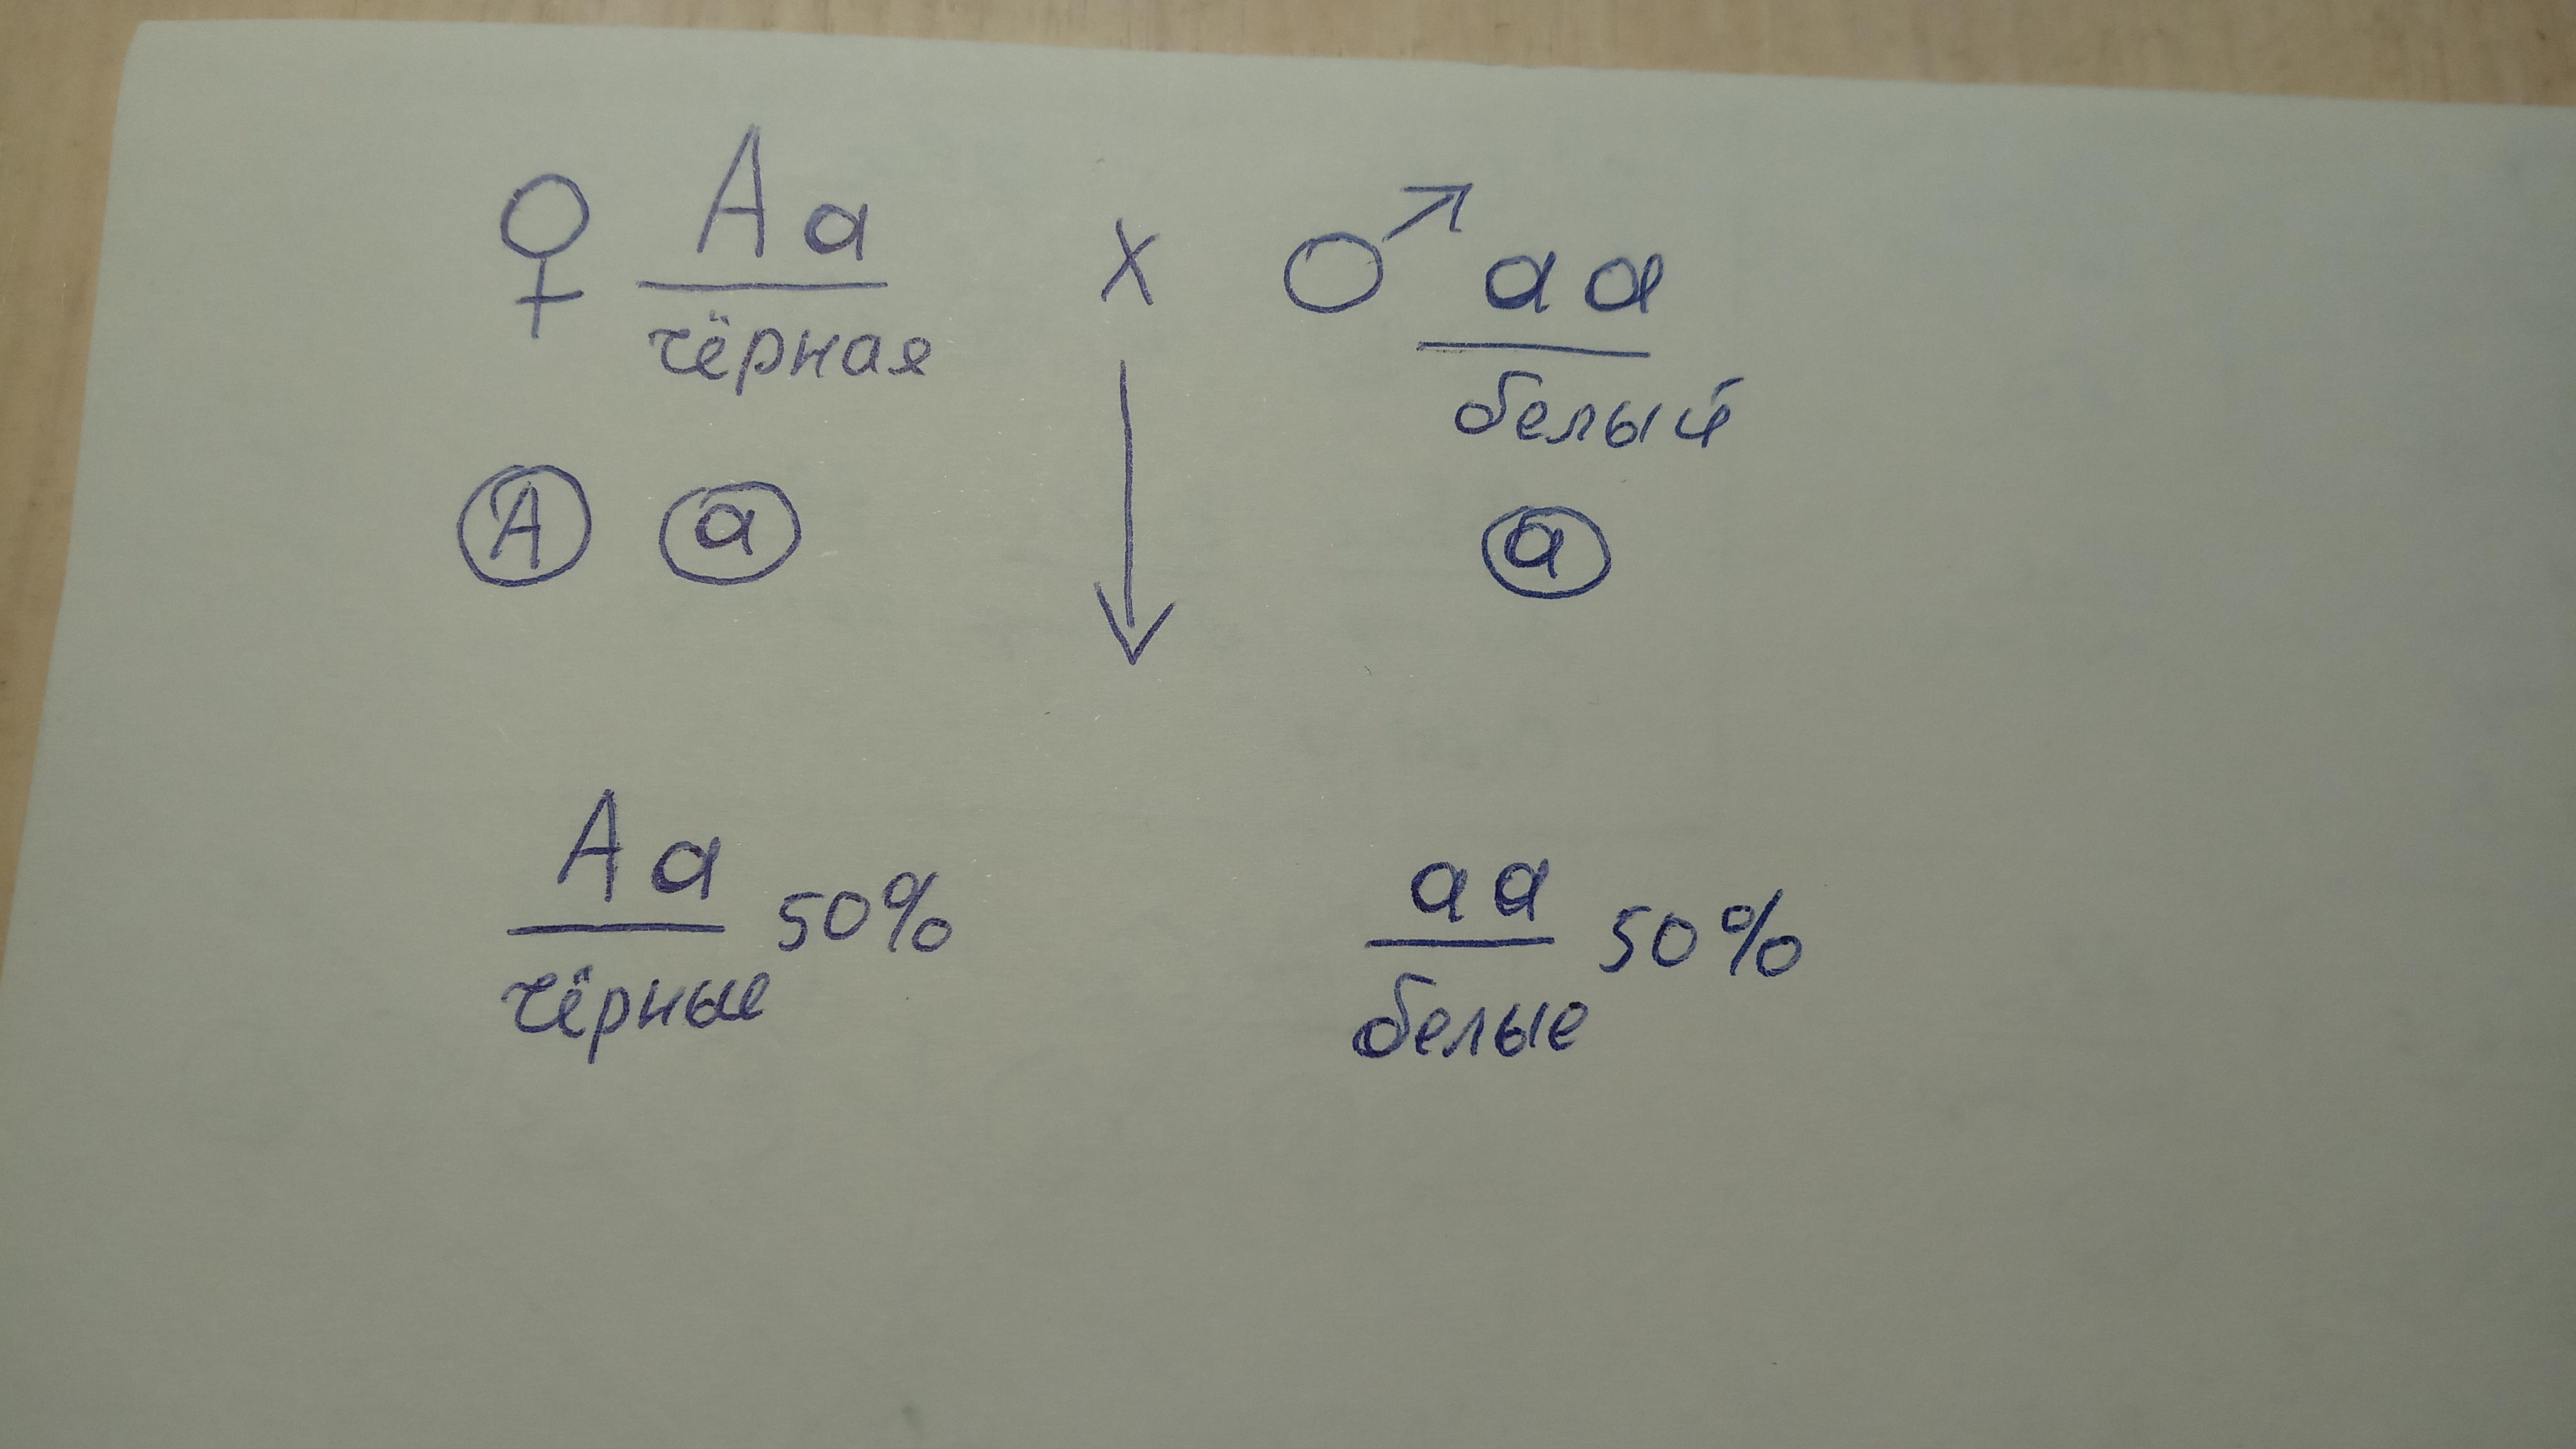 ♀ Aa x ♂ aa
чёрная белый
A a a
Aa 50% aa 50%
чёрные белые